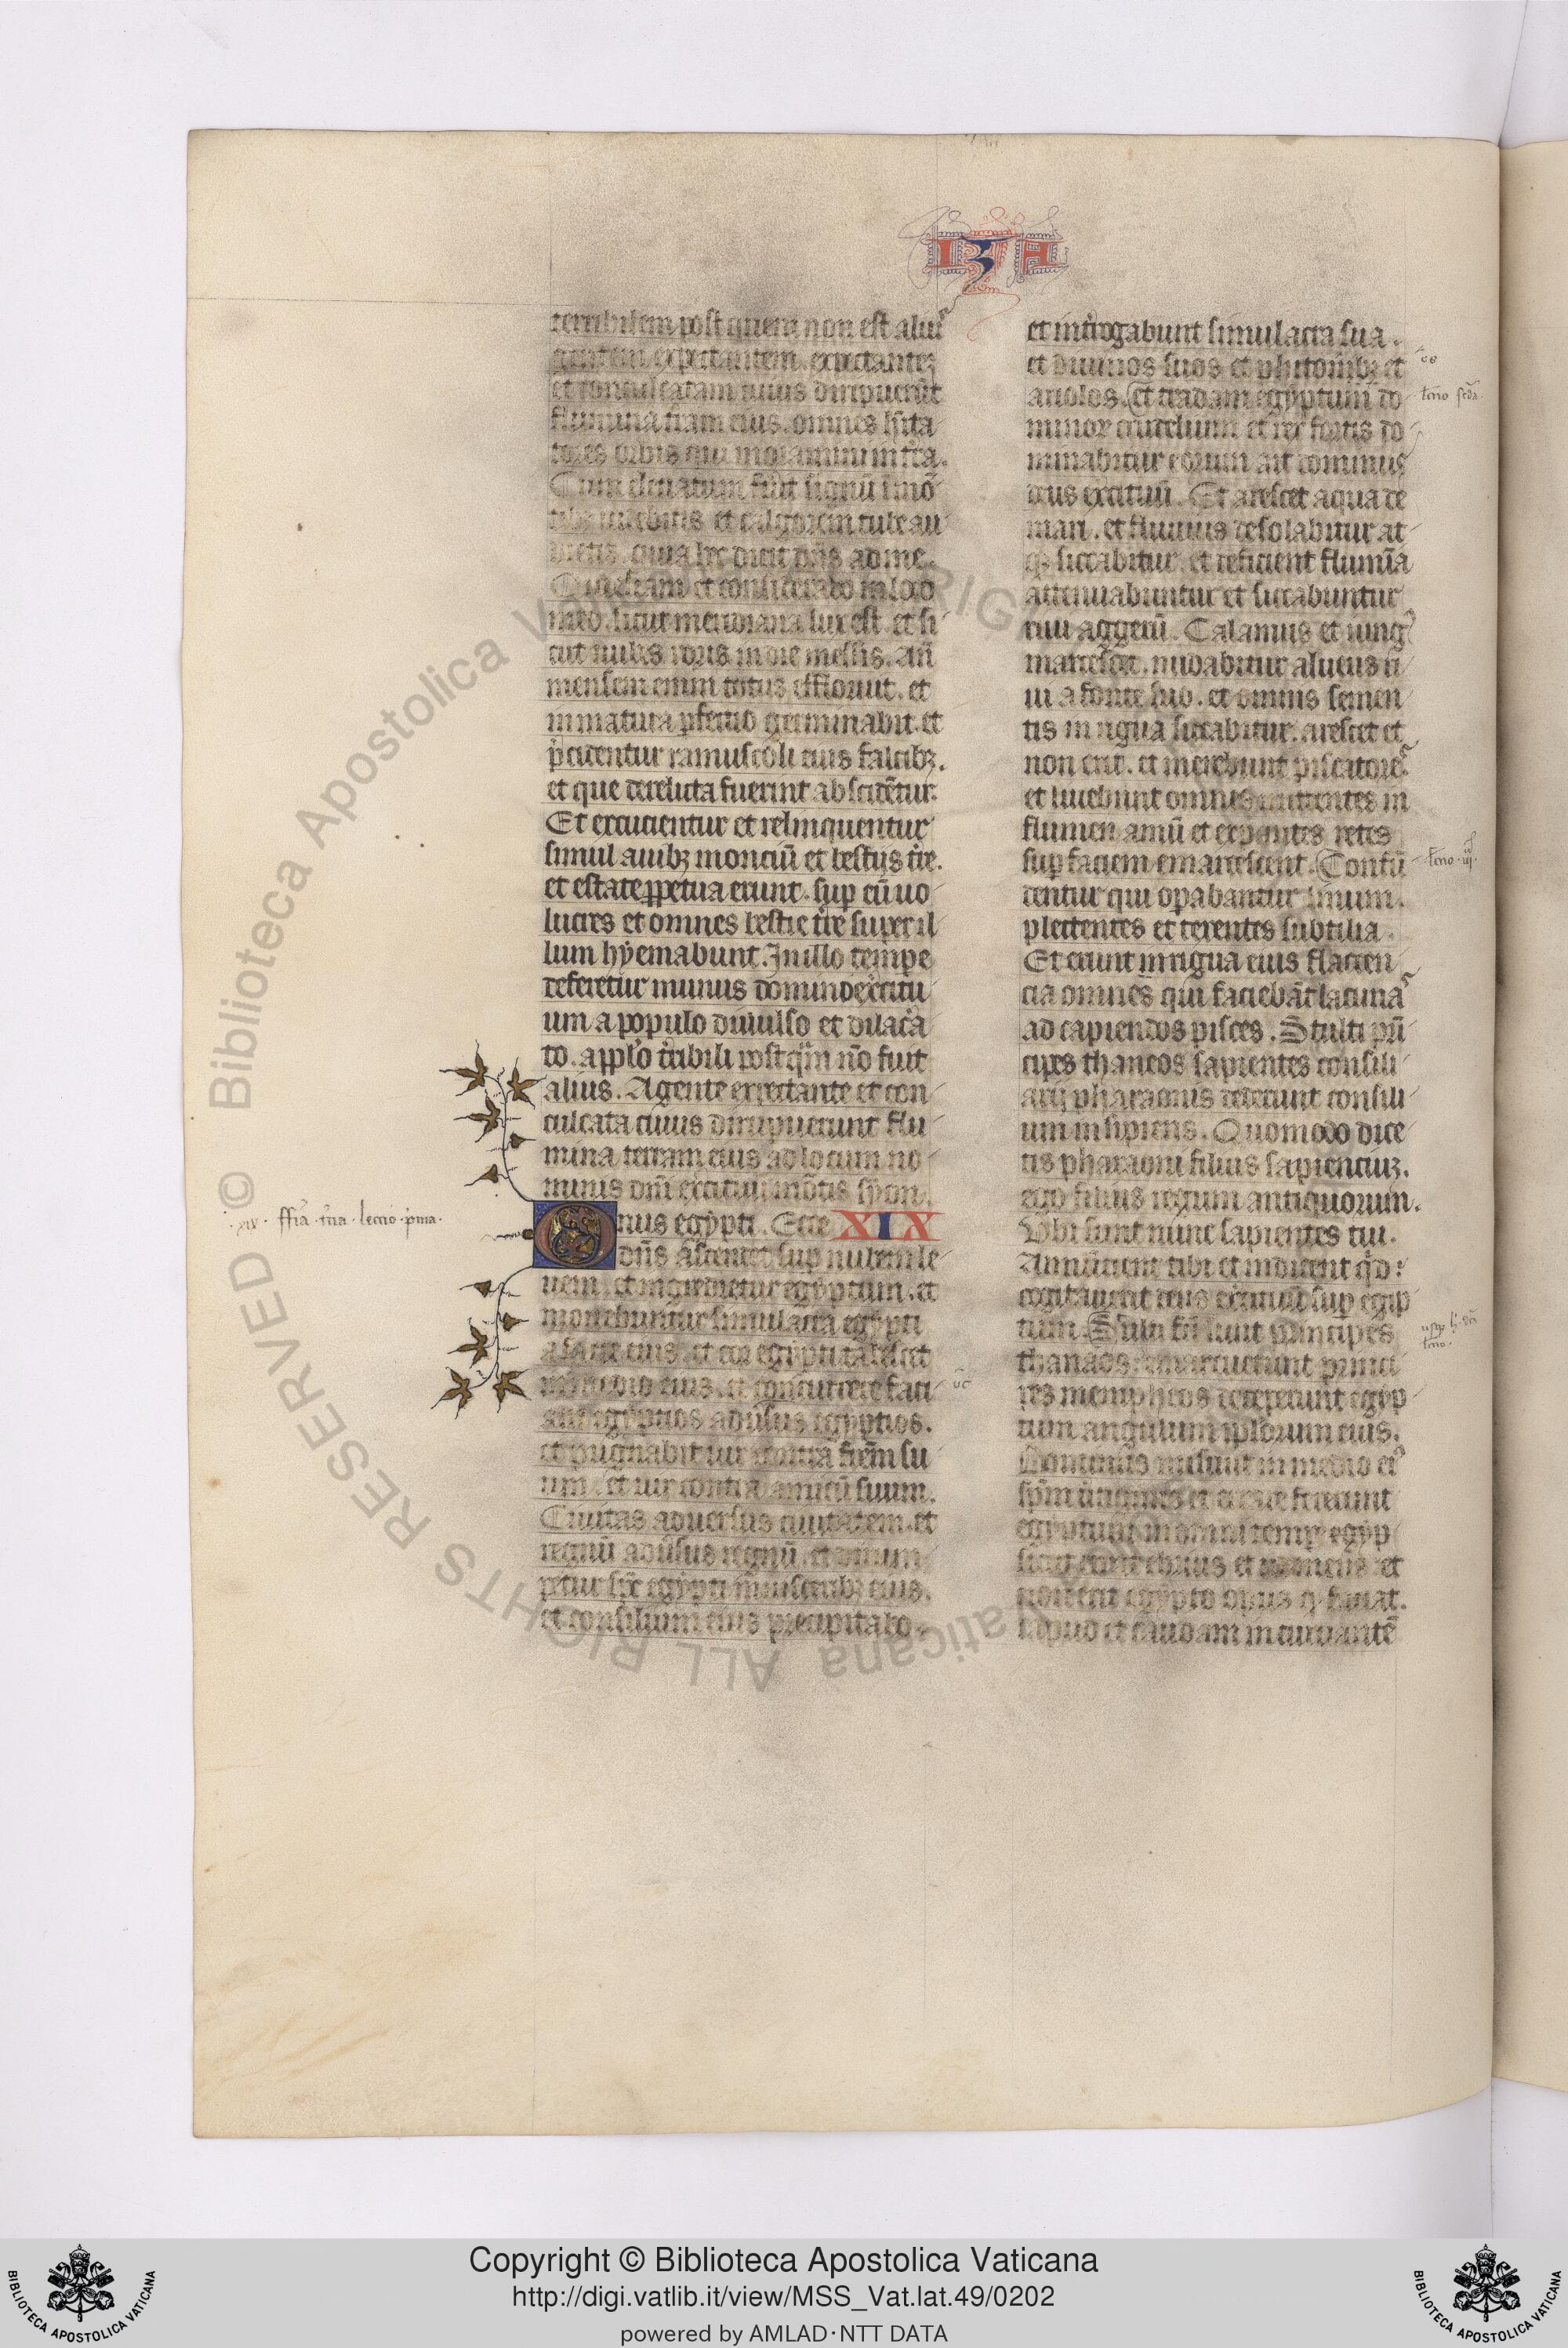 IZA
terribilem post quem non est aliꝰ
gentem expectantem. expectantē
et conculcatam cuius diripuerūt
flumina t̄ram eius. omnes hīta
tores orbis qui moramini in t̄ra.
Cum eleuatum fu̅it signū i̅ mō
tibꝫ uidebitis et clangorem tube au
dietis. quia hec dicit dn̄s ad me.
Quiescam et considerabo in loco
meo. sicut meridiana lux est. et si
cut nubes roris in die messis. An̄
messem enim totus effloruit. et
inmatura ꝑfectio germinabit. et
p̄cidentur ramusculi eius falcibꝫ.
et que derelicta fuerint abscidētur.
Et excucientur et relinquentur
simul auibꝫ monciū et bestiis t̄re.
et estate ꝑpetua erunt. suꝑ eū uo
lucres et omnes bestie t̄re super il
lum hyemabunt. In illo tempe
deferetur munus domino ex̄citu
um a populo diuulso et dilac̄a
to. a pplo t̄ribili post qm̄ nō fuit
alius. A gente expectante et con
culcata cuius diripuerunt flu
mina terram eius ad locum no
minis dnī ex̄cituū mōtis syon.
·xix· ffīa t̄tia lectio p̄ma.
Onus egypti. Ecce XIX
dn̄s ascendet suꝑ nubem le
uem. et ingredietur egyptum. et
mouebuntur simulacra egypti
a facie eius. et cor egypti tabescet
in medio eius. et concurrere faci
am egyptios adūsus egyptios.
et pugnabit uir contra frēm su
um. et uir contra amicū suum.
Ciuitas aduersus ciuitatem. et
regnū adūsus regnū. et dirum
petur sp̄c egypti in uisceribꝫ eius.
et consilium eius precipitabo.
et int̄rogabunt simulacra sua.
et diuinos suos et phitonibꝫ et
ariolos. et tradam egyptum do
lectio scd̄a
minoꝝ crudelium et rex fortis do
minabitur eorum ait dominus
deus ex̄cituū. Et arescet aqua de
mari. et fluuius desolabitur at
qꝫ siccabitur. et deficient flumīa
attenuabuntur et siccabuntur
riui aggerū. Calamus et iungꝰ
marcescet. nudabitur alueus ri
ui a fonte suo. et omnis semen
tis inrigua siccabitur. arescet et
non erit. et merebunt piscatores
et lugebunt omnes mittentes in
flumen amū et expan̄tes retes
suꝑ faciem emarcescent. Confū
lectio iij
dentur qui oꝑabantur linum.
plectentes et texentes subtilia.
Et erunt inrigua eius flaccen
cia omnes qui faciebāt lacunas
ad capiendos pisces. Stulti pn̄
cipes thaneos sapientes consili
arij pharaonis dederunt consili
um insipiens. Quomodo dice
tis pharaoni filius sapienciuꝫ.
ego filius regum antiquorum.
Vbi sunt nunc sapientes tui.
Annūcient tibi et indicent qd̄:
cogitauerit deus ex̄cituū suꝑ egip
tum. Stulti fc̄i sunt principes
thanaos. emarcuerunt princi
pes mempheos deceperunt egyp
tum angulum ipsorum eius.
Dominus miscuit in medio eiꝰ
spm̄ u̅tiginis et errare fecerunt
egyptum in omni
sicut errat ebrius et uomens et
non erit egypto opus qꝫ faciat.
caput et caudam incuruantē
Copyright © Biblioteca Apostolica Vaticana
http://digi.vatlib.it/view/MSS_Vat.lat.49/0202
powered by AMLAD·NTT DATA
BIBLIOTECA APOSTOLICA VATICANA
BIBLIOTECA APOSTOLICA VATICANA